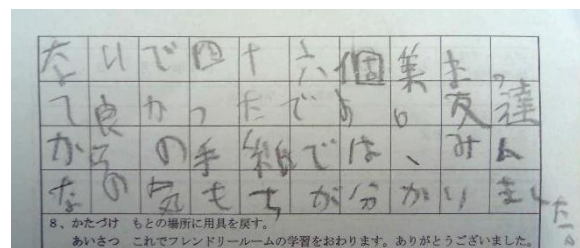 ないで四十六個集まっ
て良かったです。友達
からの手紙では、みん
なの気もちが分かりました。
8、かたづけ もとの場所に用具を戻す。
あいさつ これでフレンドリールームの学習をおわります。ありがとうございました。